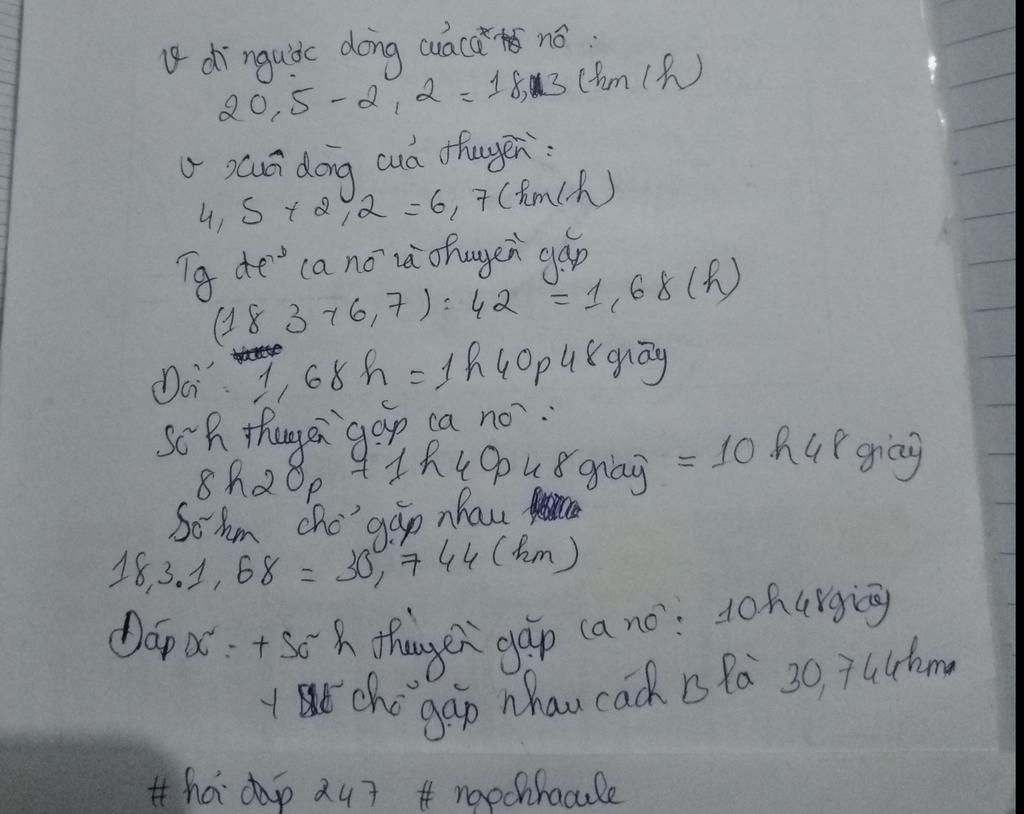 v đi ngược dòng của ca nô :
20,5 - 2,2 = 18,3 (km/h)
v xuôi dòng của thuyền :
4,5 + 2,2 = 6,7 (km/h)
Tg để ca nô và thuyền gặp
(18 3 + 6,7) : 42 = 1,68 (h)
Đổi : 1,68h = 1h40p48 giây
Số h thuyền gặp ca nô :
8h20p + 1h40p48 giây = 10h48 giây
Số km chỗ gặp nhau
18,3.1,68 = 30,744 (km)
Đáp số : + Số h thuyền gặp ca nô : 10h48 giây
+ chỗ gặp nhau cách B là 30,744km
# hỏi đáp 247 #